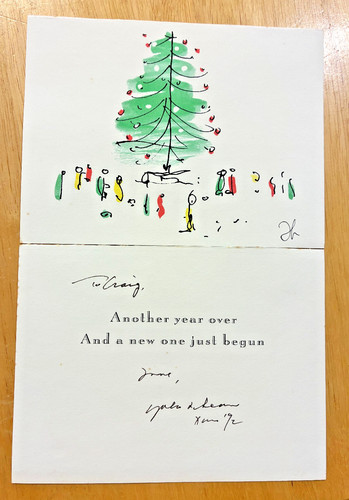 To Craig,
Another year over
And a new one just begun
love,
yoko & Sean